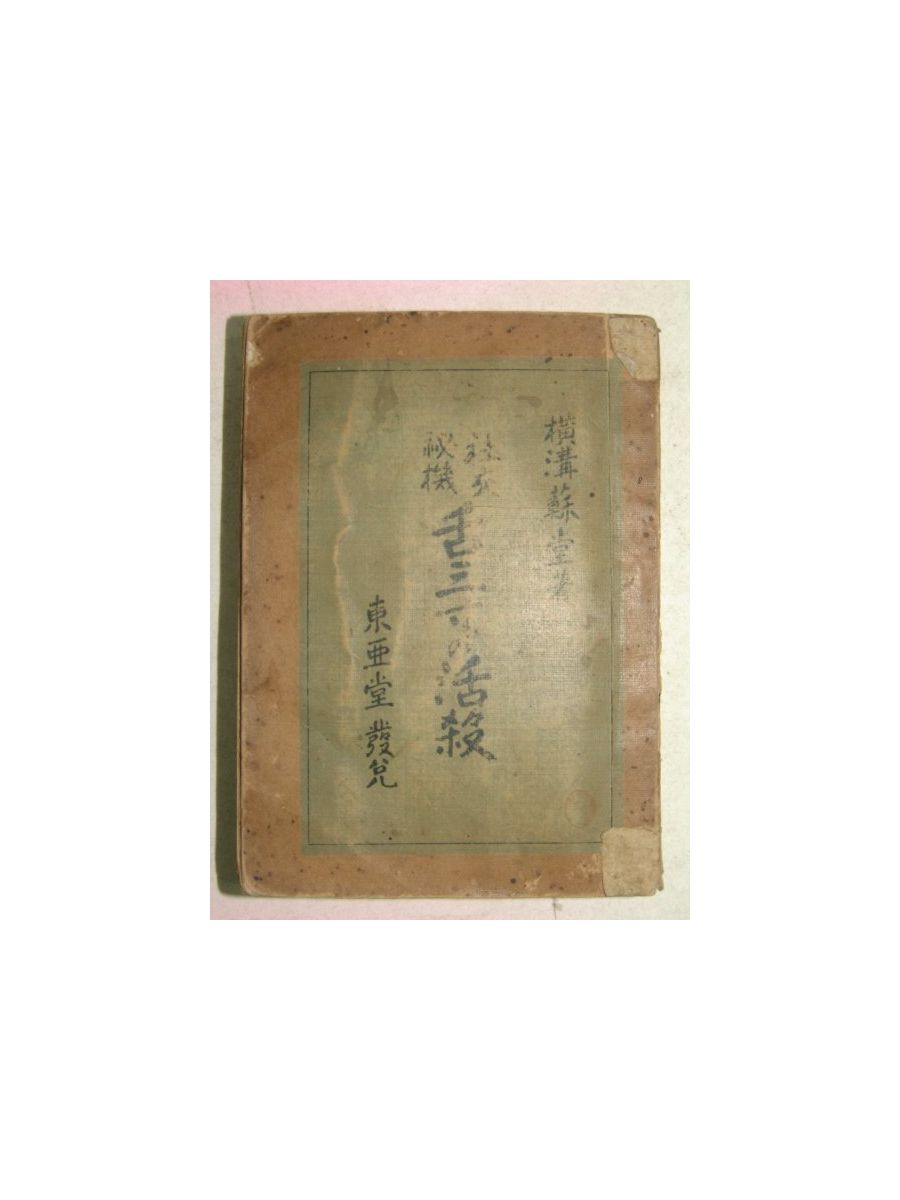 横溝蘇堂著
秘機
舌三寸の活殺
東亜堂發兌